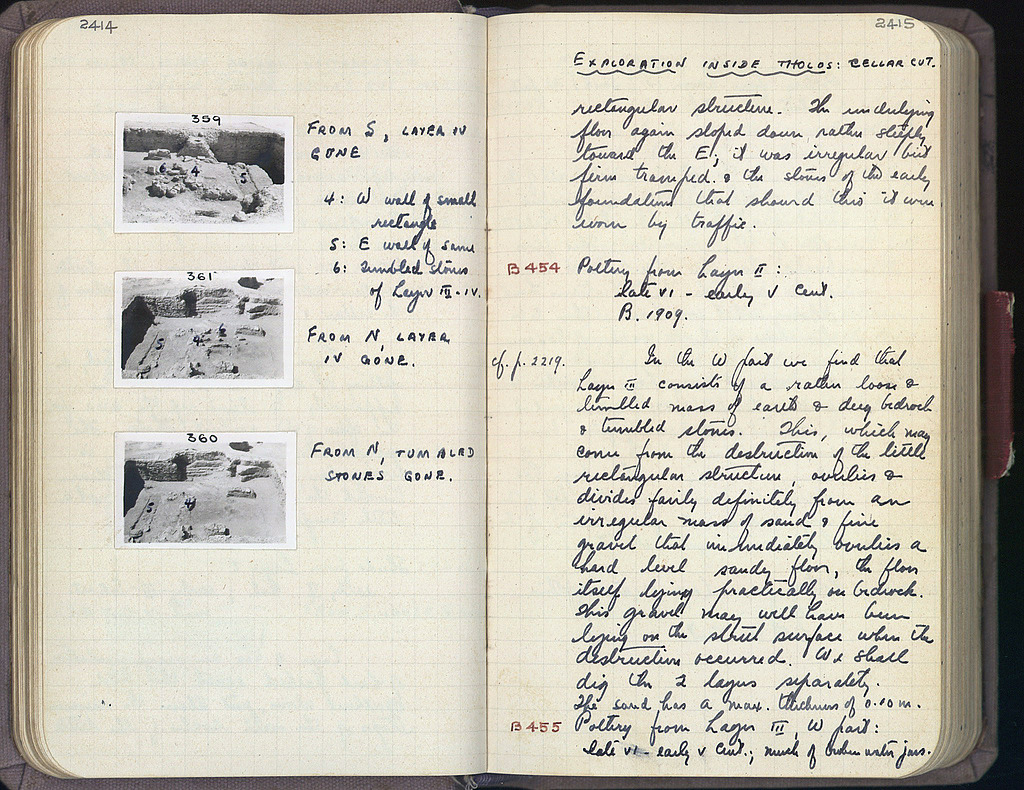 2414
359
FROM S, LAYER IV
GONE
4: W wall of small
rectangle
5: E wall of same
6: Tumbled stones
of Layer III-IV.
361
FROM N, LAYER
IV GONE.
360
FROM N, TUMBLED
STONES GONE.
2415
EXPLORATION INSIDE THOLOS: CELLAR CUT.
rectangular structure. The underlying
floor again sloped down rather steeply
toward the E; it was irregular but
firm tramped & the stones of the early
foundation that showed thro' it were
worn by traffic.
B 454 Pottery from Layer II:
late VI - early V Cent.
B. 1909.
cf. p. 2219. In the W part we find that
Layer III consists of a rather loose &
tumbled mass of earth & dug bedrock
& tumbled stones. This, which may
come from the destruction of the little
rectangular structure, overlies &
divides fairly definitely from an
irregular mass of sand & fine
gravel that immediately overlies a
hard level sandy floor, the floor
itself lying practically on bedrock.
This gravel may well have been
lying on the street surface when the
destruction occurred. We shall
dig the 2 layers separately.
The sand has a max. thickness of 0.10 m.
B 455 Pottery from Layer III, W part:
late VI - early V Cent.; much of broken water jars.